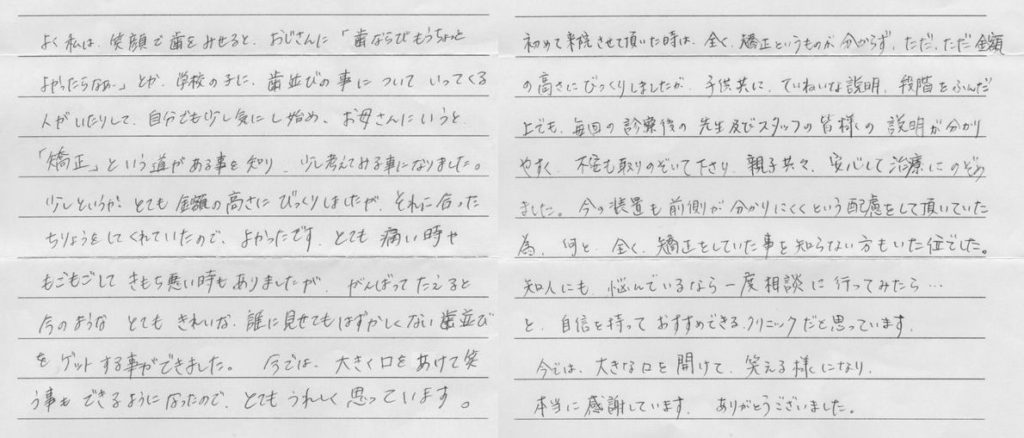 よく私は、笑顔で歯をみせると、おじさんに「歯ならびもうちょっと
よかったらなぁ」とか、学校の子に、歯並びの事について いってくる
人がいたりして、自分でも少し気にし始め、お母さんにいうと、
「矯正」という道がある事を知り、少し考えてみる事になりました。
少しというか、とても金額の高さにびっくりしましたが、それに合った
ちりょうをしてくれていたので、よかったです。とても 痛い時や
もごもごして きもち悪い時もありましたが、がんばってたえると
今のような とても きれいな、誰に見せてもはずかしくない歯並び
を ゲットする事ができました。 今では、大きく口をあけて笑
う事も できるようになったので、とてもうれしく 思っています。
初めて来院させて頂いた時は、全く、矯正というものが、分からず、ただ、ただ金額
の高さにびっくりしましたが、子供共に、ていねいな説明、段階をふんだ
上でも、毎回の診療後の先生及びスタッフの皆様の 説明が分かり
やすく、不安も取りのぞいて下さり、親子共々、安心して治療にのぞめ
ました。今の装置も前側が分かりにくくという配慮をして頂いていた
為、何と、全く、矯正をしていた事を知らない方もいた位でした。
知人にも、悩んでいるなら一度相談に行ってみたら…
と、自信を持っておすすめできるクリニックだと思っています。
今では、大きな口を開けて、笑える様になり、
本当に感謝しています。 ありがとうございました。